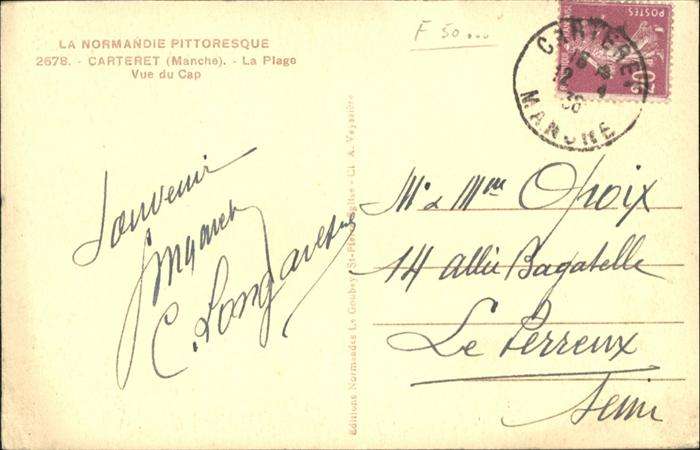 LA NORMANDIE PITTORESQUE
2678. - CARTERET (Manche). - La Plage
Vue du Cap
F 50...
POSTES
CARTERET
12 4
36
MANCHE
Souvenir
C. Longavesne
Editions Normandes Le Goubey, St-Pierre-Eglise - Cl. A. Voyssière
Mr & Mme Opoix
14 Allée Bagatelle
Le Perreux
Seine